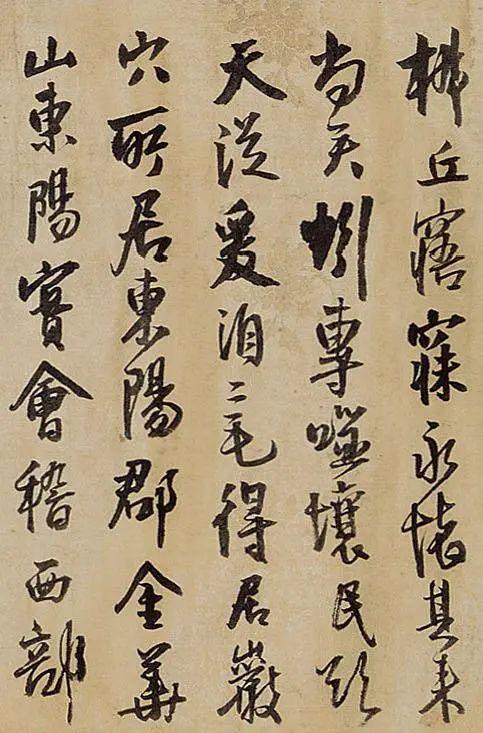 椒丘寤寐永懷其来
尚矣蚓專噬壤民欲
天從爰洎二毛得居巖
穴所居東陽郡金華
山東陽實會稽西部